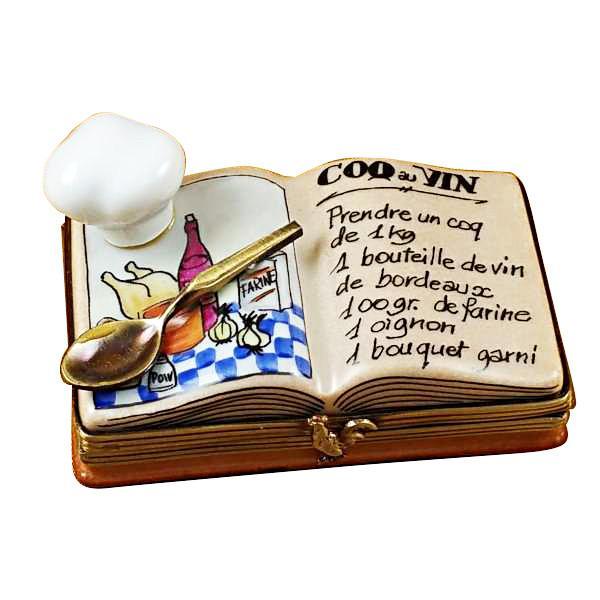 COQ au VIN
Prendre un coq
de 1kg
1 bouteille de vin
de bordeaux
100gr. de farine
1 oignon
1 bouquet garni
FARINE
POW